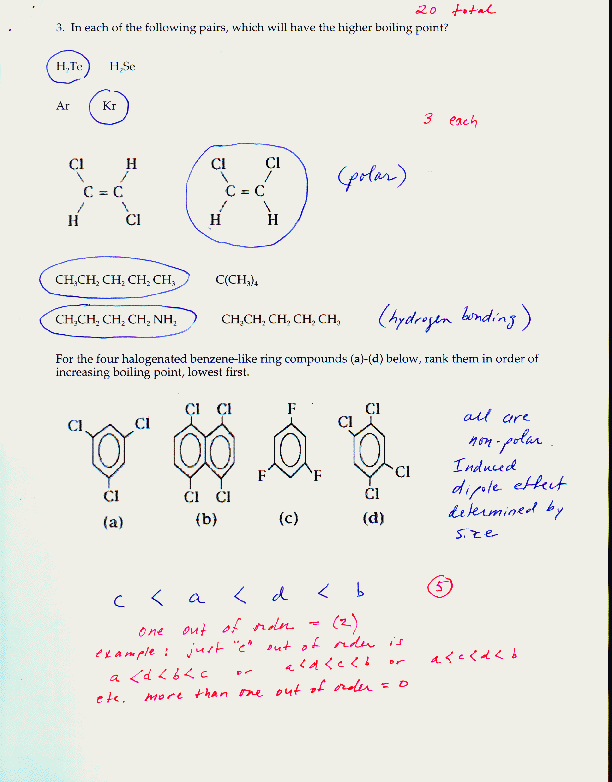 20 total
3. In each of the following pairs, which will have the higher boiling point?
H₂Te H₂Se
Ar Kr
3 each
Cl H Cl Cl
(polar)
C = C C = C
H Cl H H
CH₃CH₂ CH₂ CH₂ CH₃ C(CH₃)₄
CH₃CH₂ CH₂ CH₂ NH₂ CH₃CH₂ CH₂ CH₂ CH₃ (hydrogen bonding)
For the four halogenated benzene-like ring compounds (a)-(d) below, rank them in order of
increasing boiling point, lowest first.
Cl Cl F Cl
Cl Cl Cl
F F Cl
Cl Cl Cl Cl
(a) (b) (c) (d)
all are
non-polar.
Induced
dipole effect
determined by
size
c < a < d < b 5
one out of order = (2)
example: just "c" out of order is
a < d < b < c or a < d < c < b or a < c < d < b
etc. more than one out of order = 0